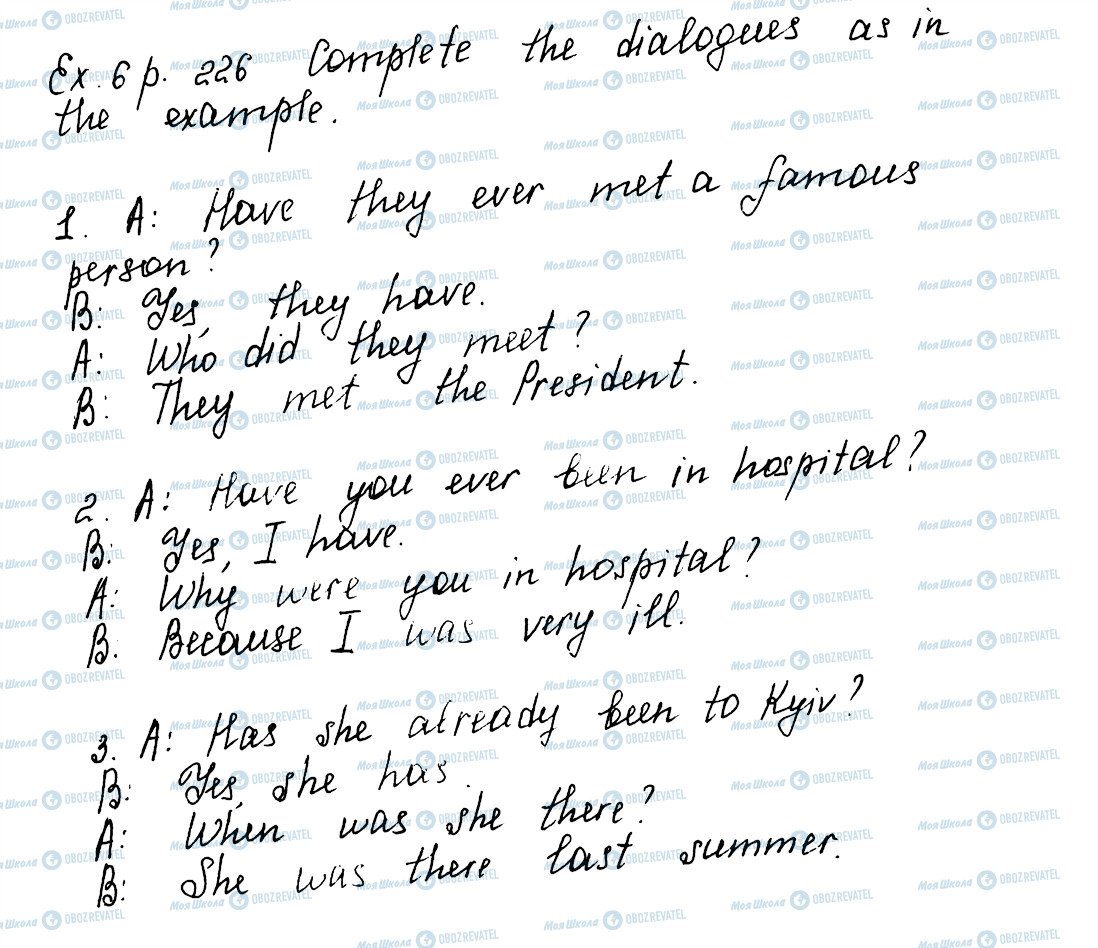 Ex. 6 p. 226 Complete the dialogues as in
the example.
1. A: Have they ever met a famous
person?
B: Yes, they have.
A: Who did they meet?
B: They met the President.
2. A: Have you ever been in hospital?
B: Yes, I have.
A: Why were you in hospital?
B. Because I was very ill.
3. A: Has she already been to Kyiv?
B: Yes, she has.
A: When was she there?
B: She was there last summer.
МОЯ ШКОЛА OBOZREVATEL